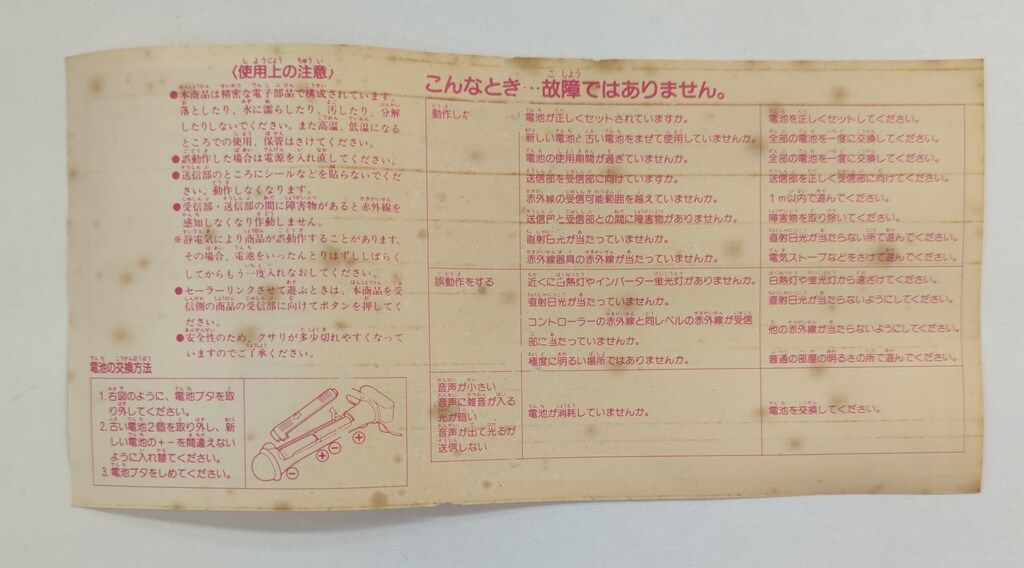 〈使用上の注意〉
●本商品は精密な電子部品で構成されています。
落としたり、水に濡らしたり、汚したり、分解
したりしないでください。また高温、低温になる
ところでの使用、保管はさけてください。
●誤動作した場合は電源を入れ直してください。
●送信部のところにシールなどを貼らないでくだ
さい。動作しなくなります。
●受信部・送信部の間に障害物があると赤外線を
感知しなくなり作動しません。
※静電気により商品が誤動作することがあります。
その場合、電池をいったんとりはずししばらく
してからもう一度入れなおしてください。
●セーラーリンクさせて遊ぶときは、本商品を受
信側の商品の受信部に向けてボタンを押してく
ださい。
●安全性のため、クサリが多少切れやすくなって
いますのでご了承ください。
電池の交換方法
1.右図のように、電池ブタを取
り外してください。
2.古い電池2個を取り外し、新
しい電池の+−を間違えない
ように入れ替てください。
3.電池ブタをしめてください。
こんなとき…故障ではありません。
動作し
電池が正しくセットされていますか。
電池を正しくセットしてください。
新しい電池と古い電池をまぜて使用していませんか。
全部の電池を一度に交換してください。
電池の使用期間が過ぎていませんか。
全部の電池を一度に交換してください。
送信部を受信部に向けていますか。
送信部を正しく受信部に向けてください。
赤外線の受信可能範囲を越えていませんか。
1m以内で遊んでください。
送信部と受信部との間に障害物がありませんか。
障害物を取り除いてください。
直射日光が当たっていませんか。
直射日光が当たらない所で遊んでください。
赤外線器具の赤外線が当たっていませんか。
電気ストーブなどをさけて遊んでください。
誤動作をする
近くに白熱灯やインバーター蛍光灯がありませんか。
白熱灯や蛍光灯から遠ざけてください。
直射日光が当たっていませんか。
直射日光が当たらないようにしてください。
コントローラーの赤外線と同レベルの赤外線が受信
部に当たっていませんか。
他の赤外線が当たらないようにしてください。
極度に明るい場所ではありませんか。
普通の部屋の明るさの所で遊んでください。
音声が小さい
音声に雑音が入る
光が暗い
音声が出て光るが
送信しない
電池が消耗していませんか。
電池を交換してください。